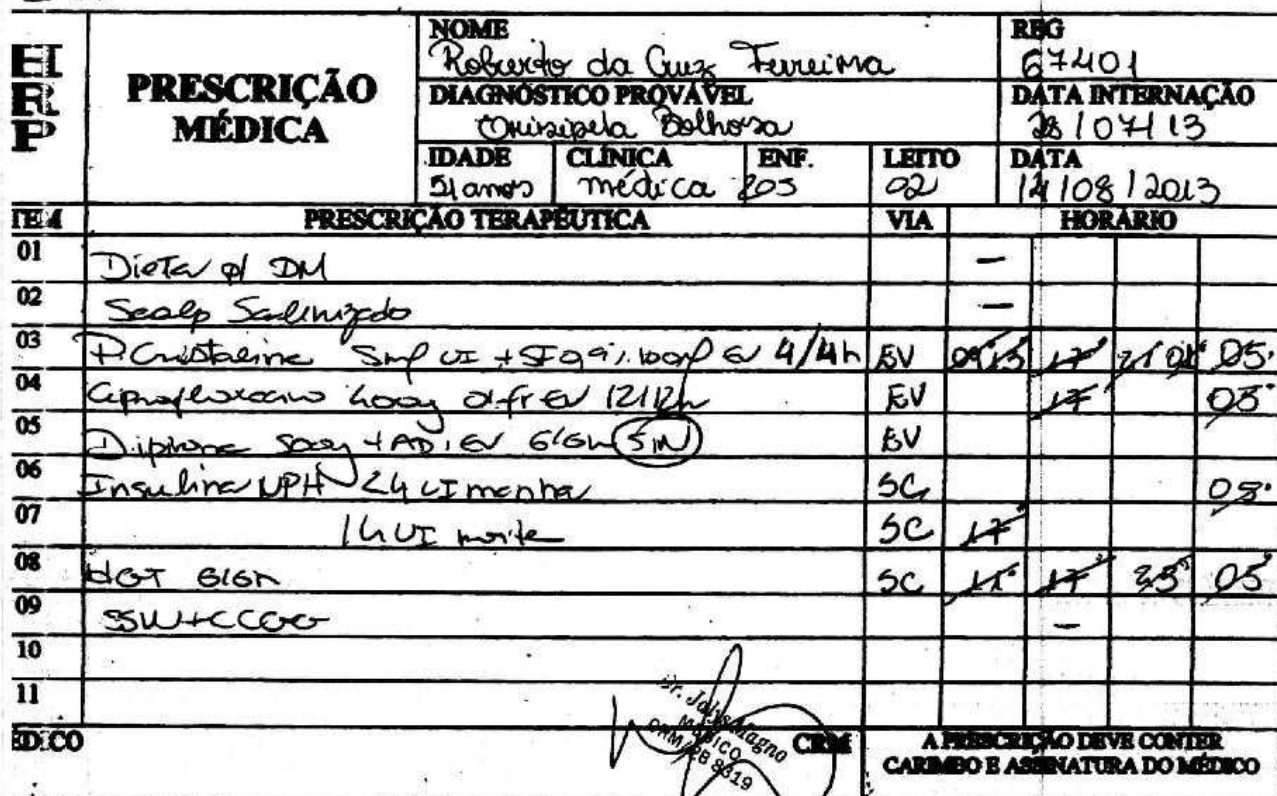 HRP
PRESCRIÇÃO MÉDICA
NOME
Roberto da Cruz Ferreira
REG
67401
DIAGNÓSTICO PROVÁVEL
Erisipela Bolhosa
DATA INTERNAÇÃO
28/07/13
IDADE CLÍNICA ENF. LEITO DATA
51 anos médica 205 02 14/08/2013
PRESCRIÇÃO TERAPÊUTICA VIA HORÁRIO
01 Dieta p/ DM -
02 Scalp Salinizado -
03 P. Cristalina UI + SF 0,9% 100ml EV 4/4h EV 09 13 17 21 01 05
04 Ciprofloxacino 400mg EV 12/12h EV 17 05
05 Dipirona + AD, EV 6/6h S/N EV
06 Insulina NPH 24 UI manha SC
07 14 UI noite SC 17
08 HGT 6/6h SC 11 17 23 05
09 SSVV+CCGG -
10
11
Dr. Magno
MÉDICO
CRM/PB 8319
CRM
A PRESCRIÇÃO DEVE CONTER
CARIMBO E ASSINATURA DO MÉDICO